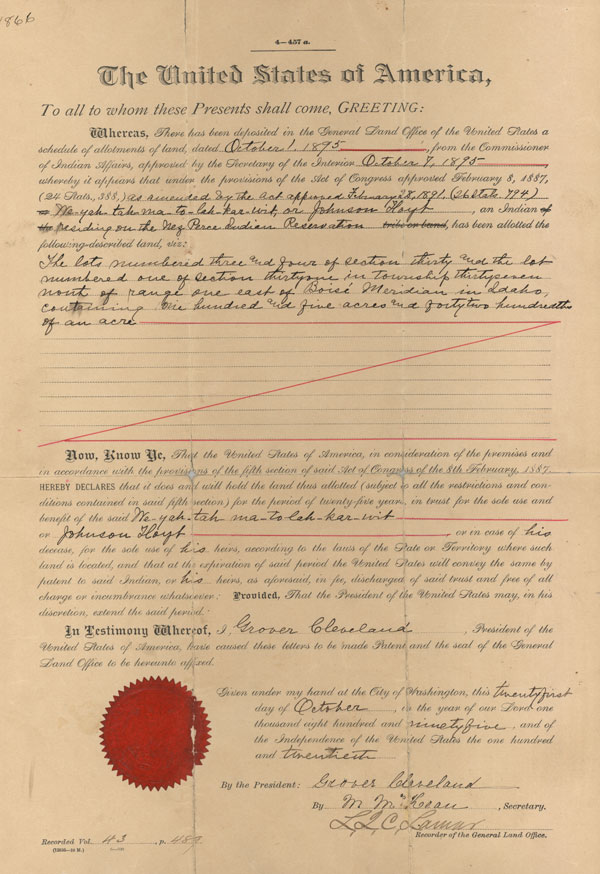 4—457 a.
The United States of America,
To all to whom these Presents shall come, GREETING:
Whereas, There has been deposited in the General Land Office of the United States a
schedule of allotments of land, dated October 1, 1895, from the Commissioner
of Indian Affairs, approved by the Secretary of the Interior October 7, 1895
whereby it appears that under the provisions of the Act of Congress approved February 8, 1887,
(24 Stats., 388,) as amended by the Act approved February 28, 1891, (26 Stats. 794)
We-yah-tah-ma-to-lah-kar-wit, or Johnson Hoyt, an Indian of
the residing on the Nez Perce Indian Reservation tribe or band, has been allotted the
following-described land, viz:
The lots numbered three and four of section thirty and the lot
numbered one of section thirtyone in township thirtyseven
north of range one east of Boisé Meridian in Idaho,
containing one hundred and five acres and fortytwo hundredths
of an acre
Now, Know Ye, That the United States of America, in consideration of the premises and
in accordance with the provisions of the fifth section of said Act of Congress of the 8th February, 1887,
HEREBY DECLARES that it does and will hold the land thus allotted (subject to all the restrictions and con-
ditions contained in said fifth section) for the period of twenty-five years, in trust for the sole use and
benefit of the said We-yah-tah-ma-to-lah-kar-wit
or Johnson Hoyt, or in case of his
decease, for the sole use of his heirs, according to the laws of the State or Territory where such
land is located, and that at the expiration of said period the United States will convey the same by
patent to said Indian, or his heirs, as aforesaid, in fee, discharged of said trust and free of all
charge or incumbrance whatsoever: Provided, That the President of the United States may, in his
discretion, extend the said period.
In Testimony Whereof, I, Grover Cleveland, President of the
United States of America, have caused these letters to be made Patent and the seal of the General
Land Office to be hereunto affixed.
Given under my hand at the City of Washington, this twentyfirst
day of October, in the year of our Lord one
thousand eight hundred and ninetyfive, and of
the Independence of the United States the one hundred
and twentieth
By the President: Grover Cleveland
By M. McKean, Secretary.
L. Q. C. Lamar
Recorder of the General Land Office.
Recorded Vol. 43, p. 489